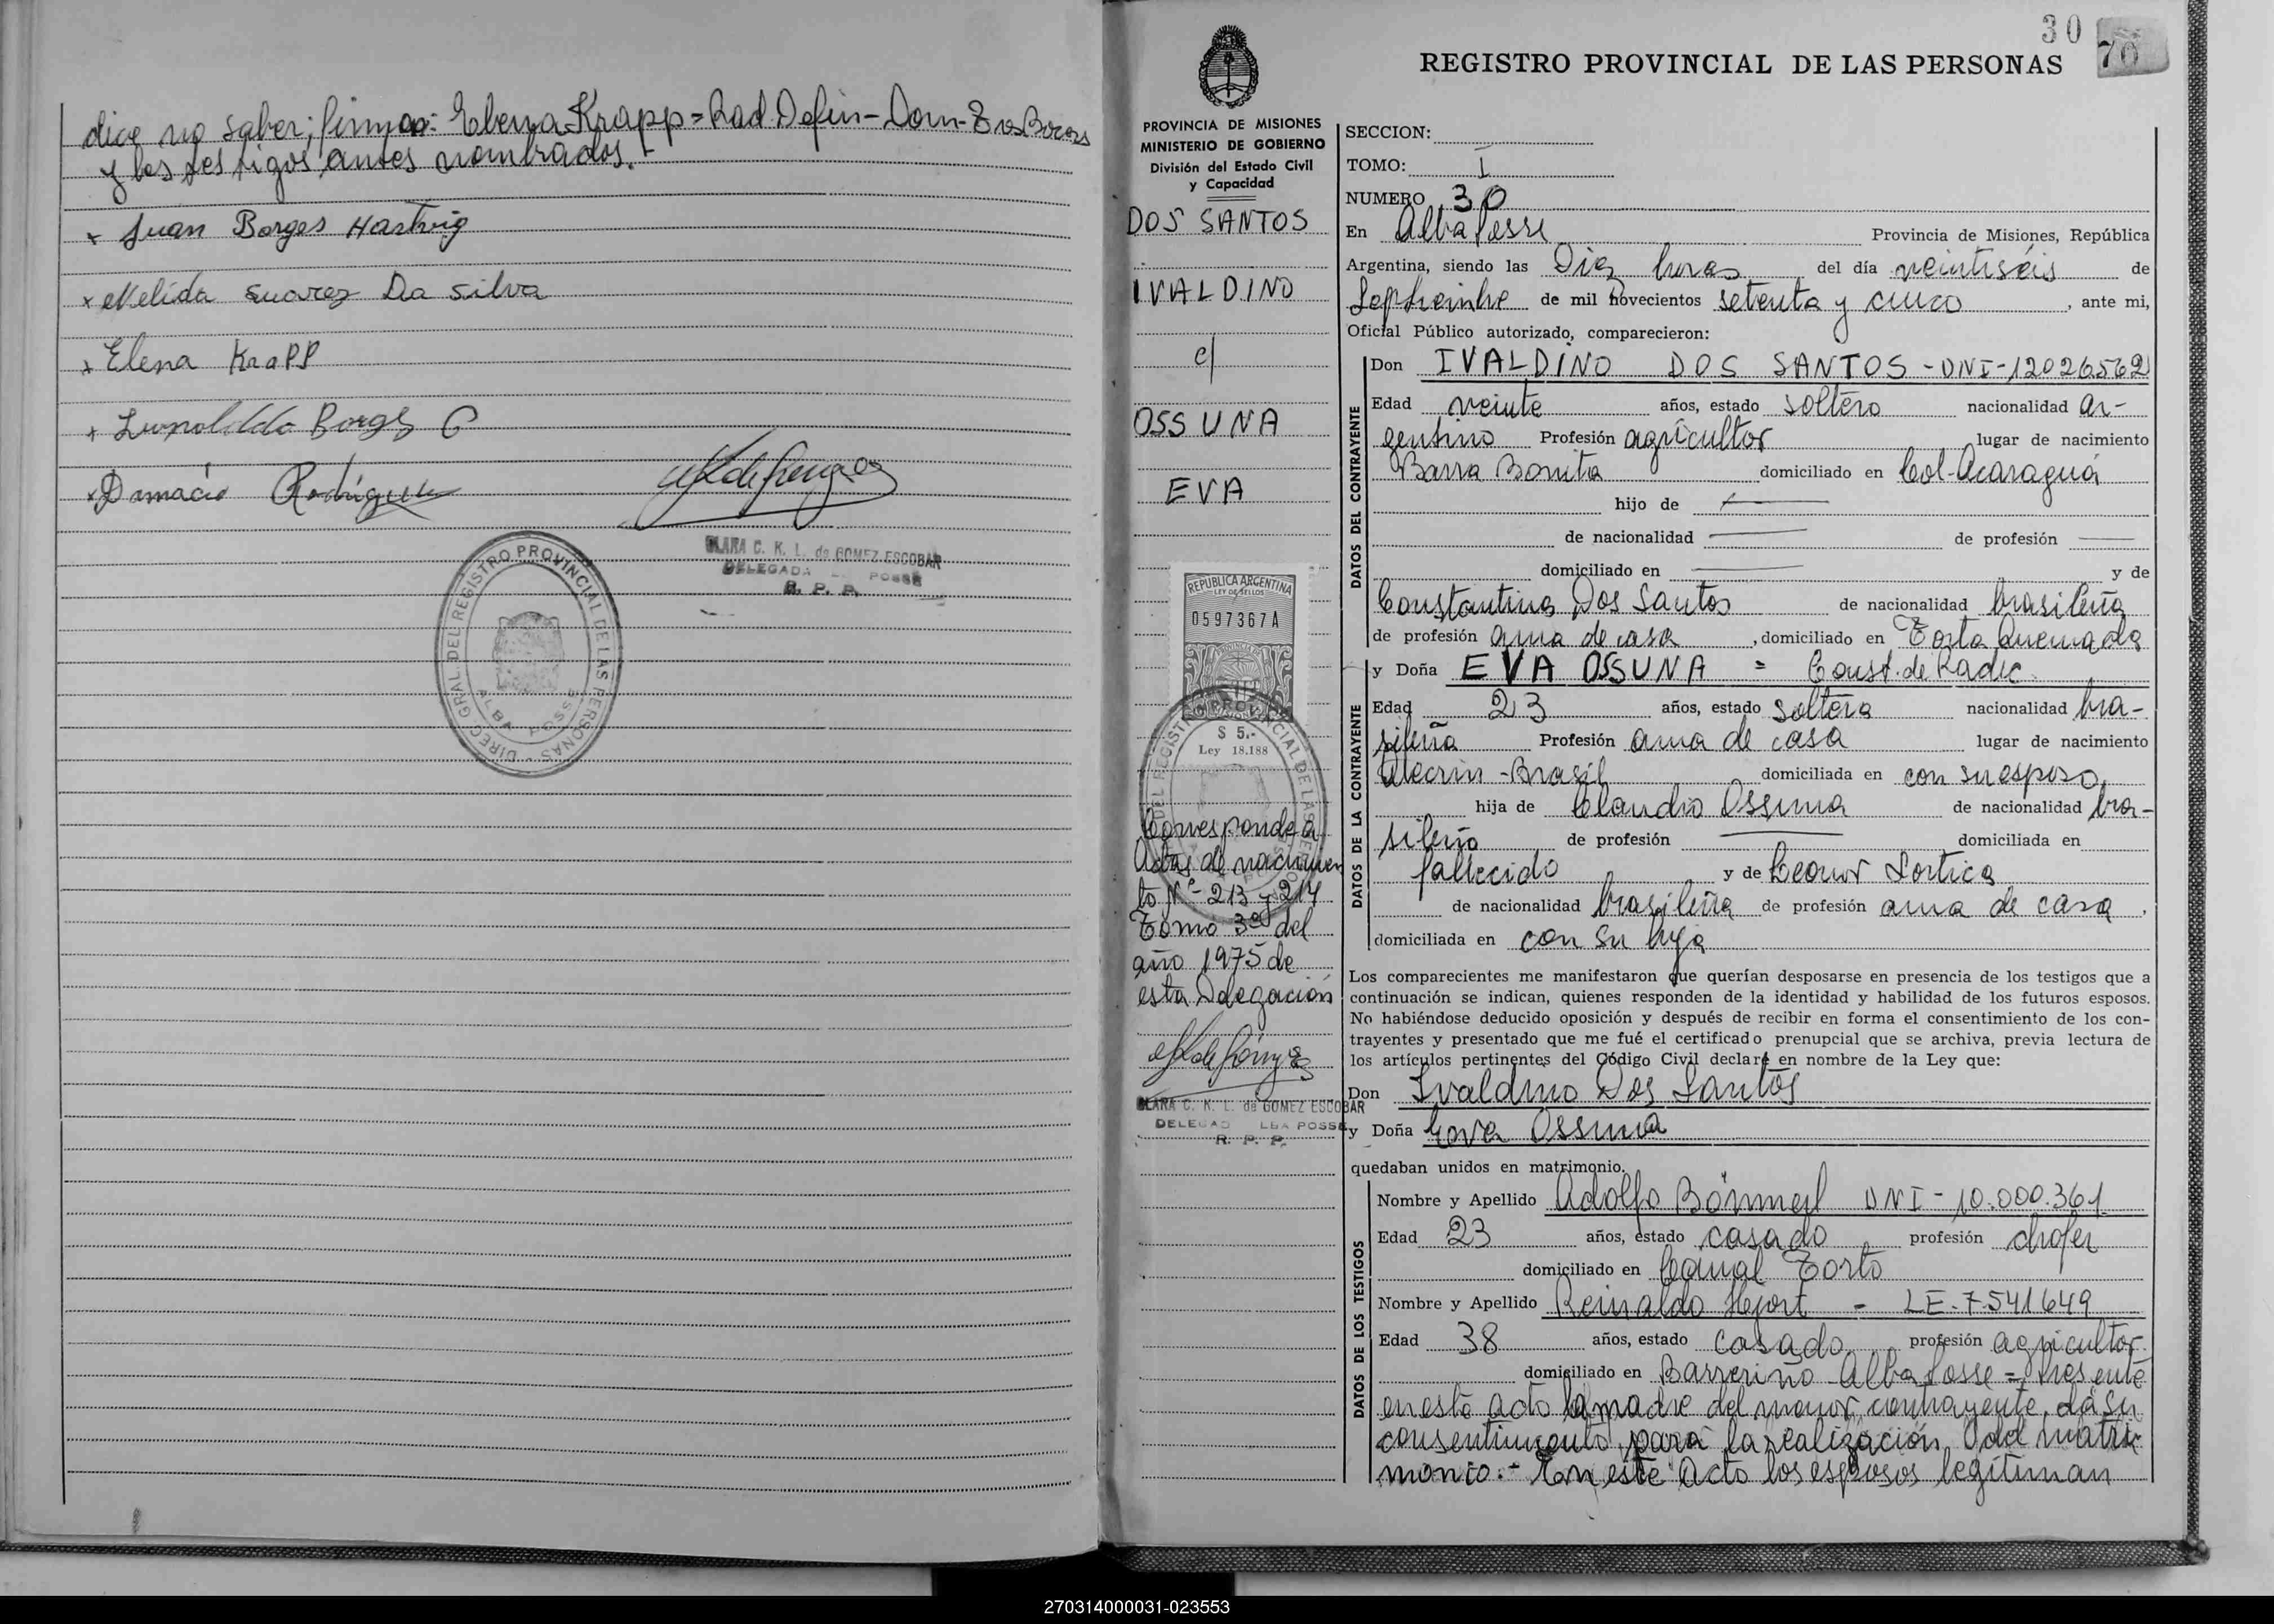 dice no saber; firma: Elena Krapp = Rad. Defin - Dom - Tres Bocas
y los testigos antes nombrados.-
x Juan Borges Hartvig
x Nelida Suarez Da Silva
x Elena Krapp
x Leopoldo Borges
x Damacio Rodríguez
CLARA C. K. L. de GOMEZ ESCOBAR
DELEGADA POSSE
R. P. P.
DIREC. GRAL DEL REGISTRO PROVINCIAL DE LAS PERSONAS
ALBA POSSE
30
70
REGISTRO PROVINCIAL DE LAS PERSONAS
PROVINCIA DE MISIONES
MINISTERIO DE GOBIERNO
División del Estado Civil
y Capacidad
DOS SANTOS
IVALDINO
c/
OSSUNA
EVA
REPUBLICA ARGENTINA
LEY DE SELLOS
0597367A
$ 5.-
Ley 18.188
Corresponde a
Actas de nacimien
to Nº- 213 y 214
Tomo 3º del
año 1975 de
esta Delegación
CLARA C. K. L. de GOMEZ ESCOBAR
DELEGAD LBA POSSE
R. P. P.
SECCION:
TOMO: I
NUMERO 30
En Alba Posse Provincia de Misiones, República
Argentina, siendo las Diez horas del día veintiséis de
Septiembre de mil novecientos setenta y cinco, ante mi,
Oficial Público autorizado, comparecieron:
DATOS DEL CONTRAYENTE
Don IVALDINO DOS SANTOS - DNI - 12026562
Edad veinte años, estado soltero nacionalidad ar-
gentino Profesión agricultor lugar de nacimiento
Barra Bonita domiciliado en Col-Acaraguá
hijo de —
de nacionalidad — de profesión —
domiciliado en — y de
Constantina Dos Santos de nacionalidad brasileña
de profesión ama de casa, domiciliado en Torta Quemada
DATOS DE LA CONTRAYENTE
y Doña EVA OSSUNA = Const. de Radic.
Edad 23 años, estado soltera nacionalidad bra-
sileña Profesión ama de casa lugar de nacimiento
Alecrin - Brasil domiciliada en con su esposo
hija de Claudio Ossuna de nacionalidad bra-
sileño de profesión — domiciliada en
fallecido y de Leonor Sortica
de nacionalidad brasileña de profesión ama de casa,
domiciliada en con su hija
Los comparecientes me manifestaron que querían desposarse en presencia de los testigos que a
continuación se indican, quienes responden de la identidad y habilidad de los futuros esposos.
No habiéndose deducido oposición y después de recibir en forma el consentimiento de los con-
trayentes y presentado que me fué el certificado prenupcial que se archiva, previa lectura de
los artículos pertinentes del Código Civil declaré en nombre de la Ley que:
Don Ivaldino Dos Santos
y Doña Eva Ossuna
quedaban unidos en matrimonio.
DATOS DE LOS TESTIGOS
Nombre y Apellido Adolfo DNI - 10.000.361
Edad 23 años, estado casado profesión chofer
domiciliado en Canal Torto
Nombre y Apellido Reinaldo Hejort - LE. 7541649
Edad 38 años, estado casado profesión agricultor
domiciliado en Barrerito - Alba Posse = Presente
en este acto la madre del menor contrayente, da su
consentimiento para la realización del matri-
monio.- En este Acto los esposos legitiman
270314000031-023553